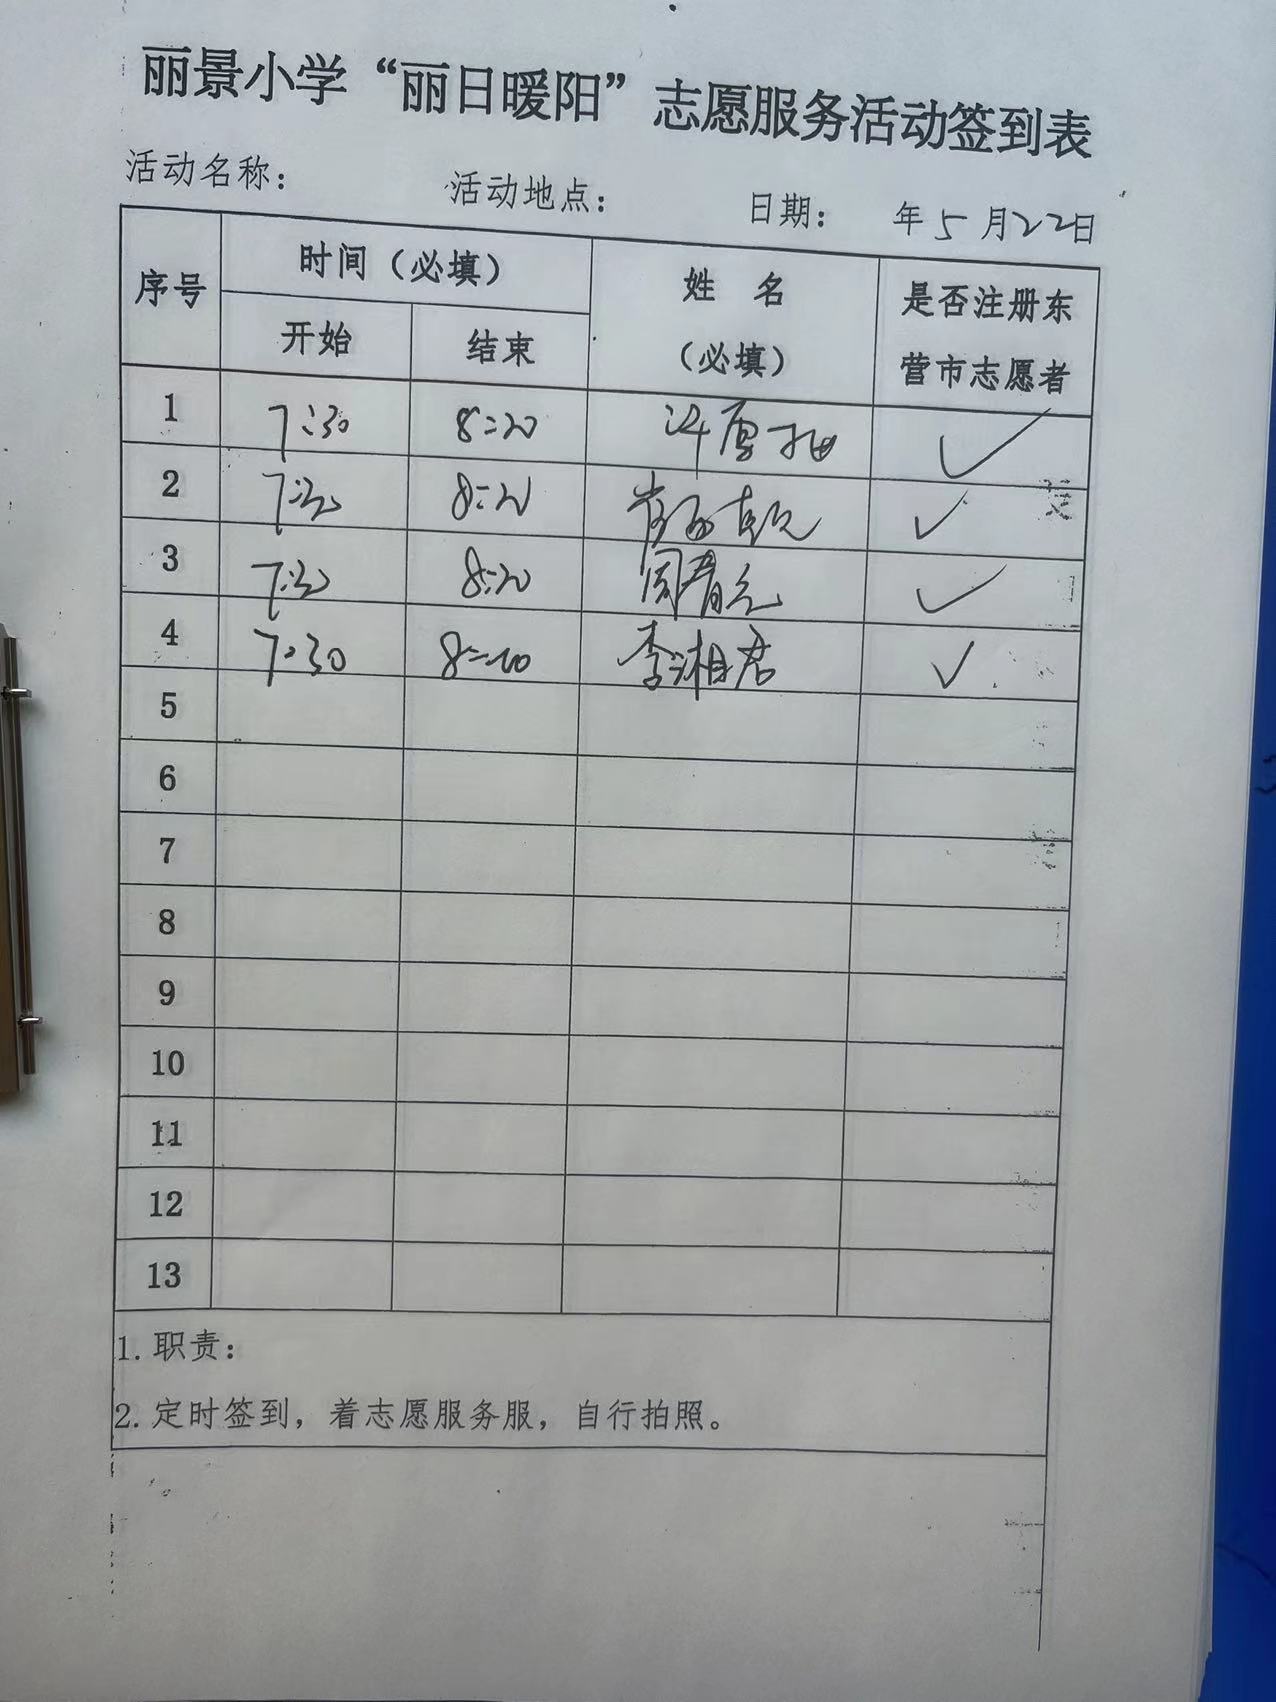 丽景小学“丽日暖阳”志愿服务活动签到表
活动名称： 活动地点： 日期： 年5月22日
序号 时间（必填） 姓 名（必填） 是否注册东营市志愿者
开始 结束
1 7:30 8:20
2 7:30 8:20
3 7:30 8:20
4 7:30 8:20 李湘君
5
6
7
8
9
10
11
12
13
1. 职责：
2. 定时签到，着志愿服务服，自行拍照。